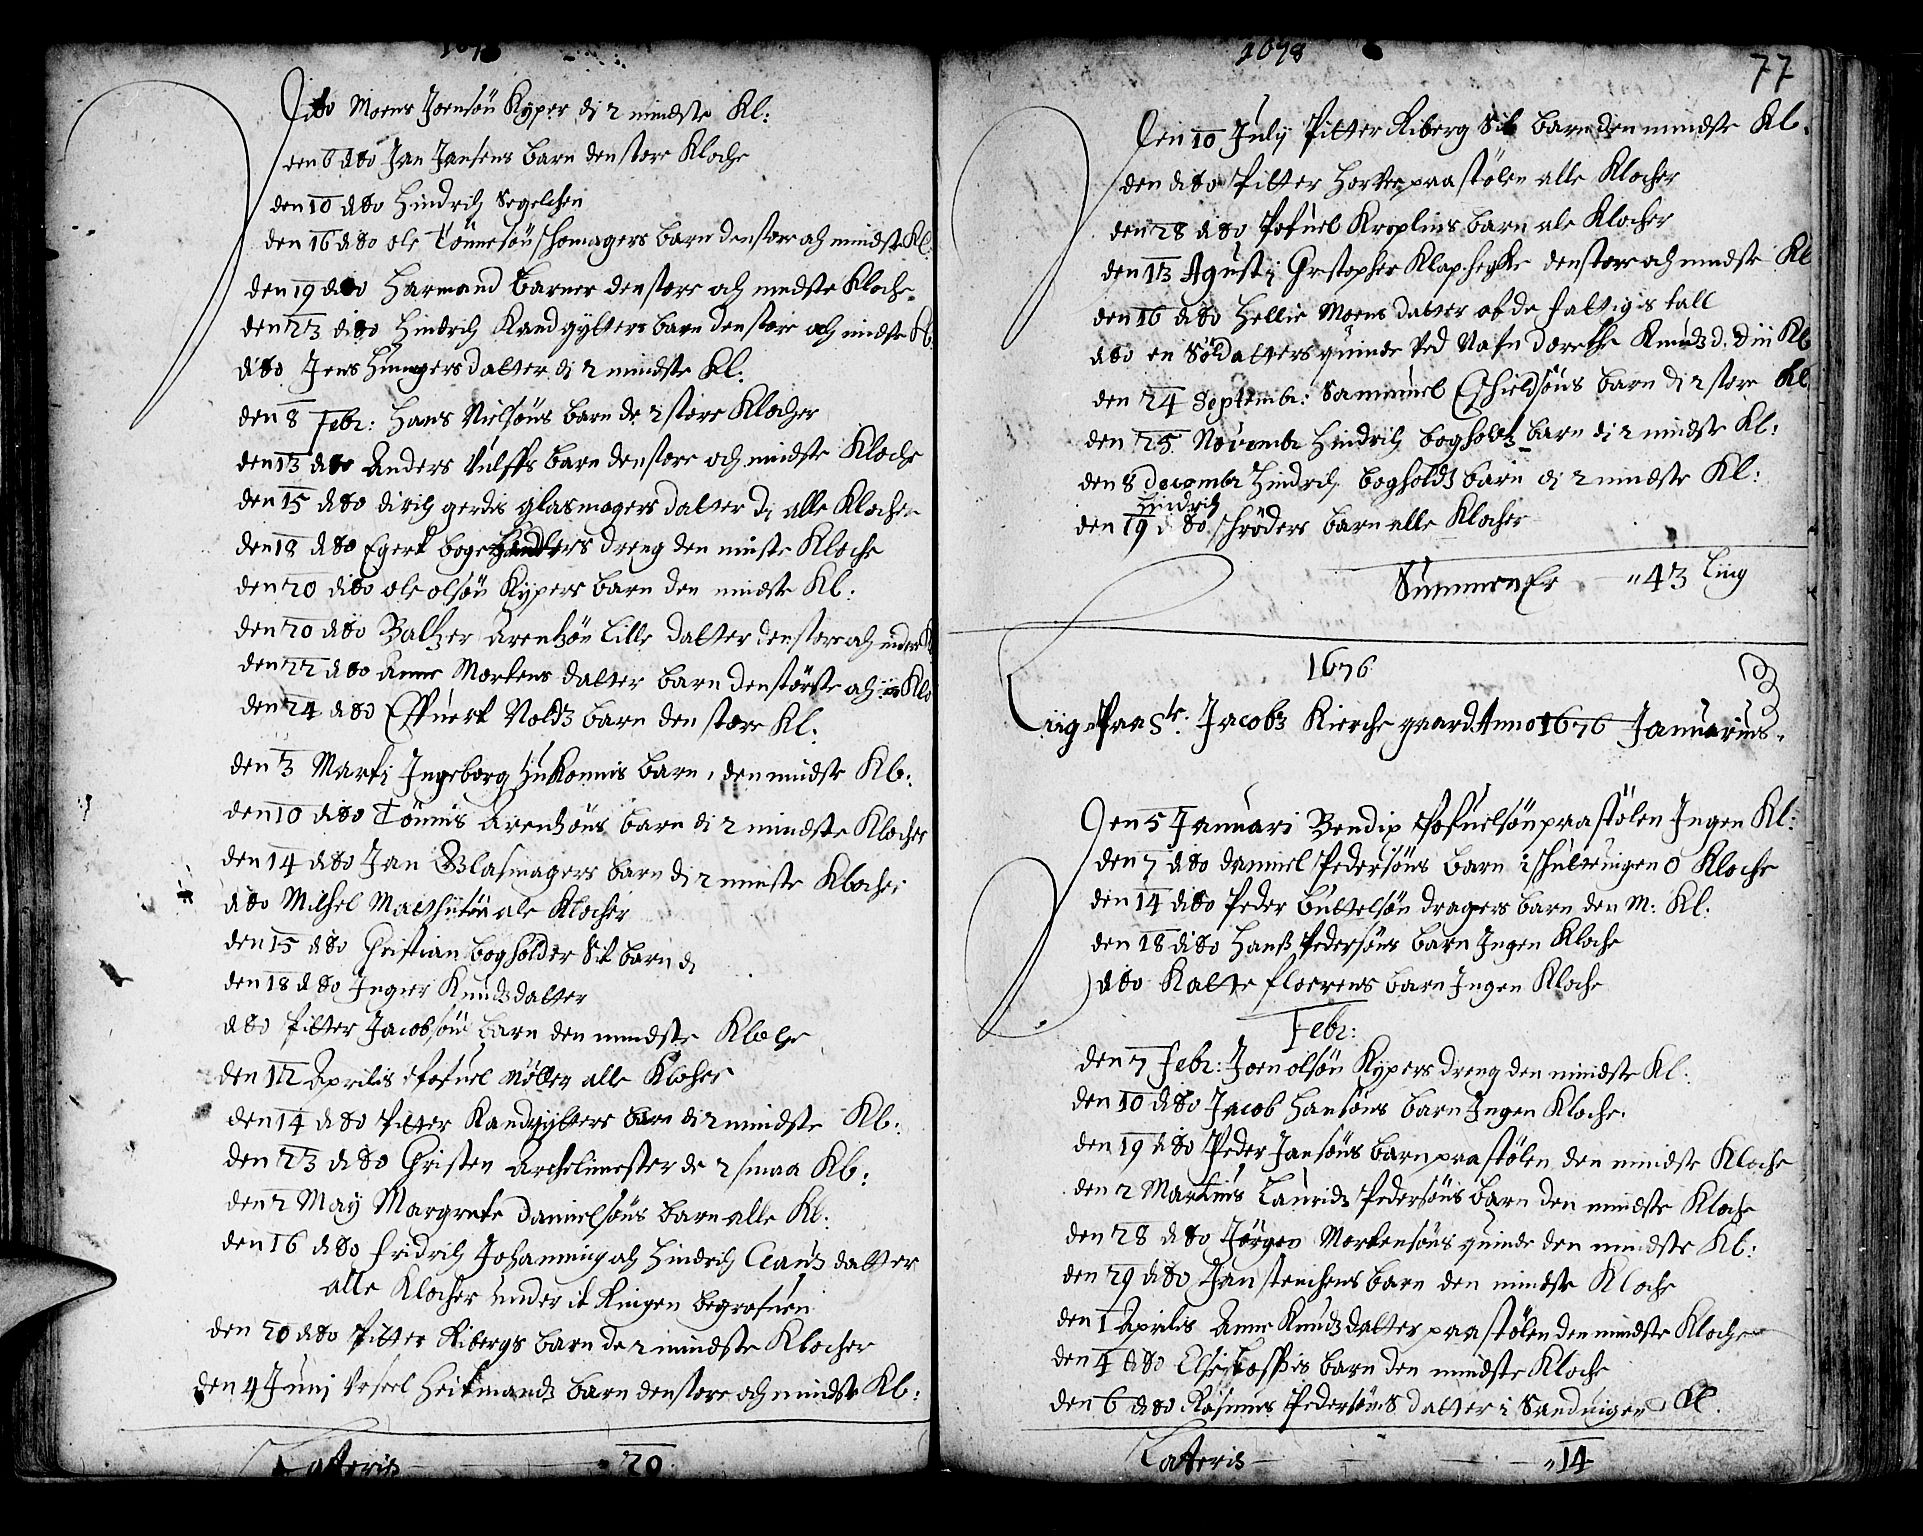 dito Moens Joensön Kyper di 2 mindste Kl:
den 6 dito Jan Jansens barn den store Kloche
den 10 dito Hindrich Segelchen
den 16 dito ole Tönnesön schomagers barn den store och mindste Kl.
den 19 dito Harmand Barner den store och mindste Kloche
den 23 dito Hindrich Kandgyters barn den store och mindste Kl.
dito Jens Hungers datter di 2 mindste Kl.
den 8 Febr: Hans Nielsöns barn de 2 store Klocher
den 13 dito Anders Vulffs barn den store och mindste Kloche
den 15 dito dirich gerdis glasmagers datter di alle Klocher
den 18 dito Egert bogehandlers dreng den minste Kloche
den 20 dito ole olsön Kypers barn den mindste Kl:
den 20 dito Baltzer Arentzön Lille datter den store och mindste Kl
den 22 dito Anne Mortens datter barn den störste och Klo
den 24 dito Effuert Noldz barn den store Kl:
den 3 Marti Ingeborg barn, den mindste Kl:
den 10 dito Tönnis Arentzöns barn di 2 mindste Klocher
den 14 dito Jan Glasmagers barn di 2 minste Klocher
dito Milhel Matthisön ale Klocher
den 15 dito Christian bogholder Sit barn di
den 18 dito Inger Knudz datter
dito Pitter Jacobsöns barn den mindste Kloche
den 12 Aprilis Pofuel Möller alle Klocher
den 14 dito Pitter Kandgytters barn di 2 mindste Kl:
den 23 dito Christen Archelimester de 2 smaa Kl:
den 2 May Margrete Danielsöns barn alle Kl:
den 16 dito fridrich Johanning och Hindrich Clausz datter
alle Klocher under it Ringen begrafuen
den 20 dito Pitter Ribergs barn de 2 mindste Klocher
den 4 Junj Vesel Heitmandz barn den store och mindste Kl:
Latteris 20
1678
77
Den 10 July Pitter Riberg Sit barn den mindste Kl.
den dito Pitter Horter paa stölen alle Klocher
den 28 dito Pofuel Kroplins barn ale Klocher
den 13 Agustj Christopher den store och mindste Kl
den 16 dito Hellie Moens datter of de fattigis tall
dito en Soldatters quinde Ved Nafn dorethe Knudz d. Kl
den 24 Septembr: Sammuel Eschieldsöns barn di 2 store Kl
den 25 Novembr Hindrich bogholtz barn di 2 mindste Kl:
den 8 decembr Hindrich bogholdz barn di 2 mindste Kl:
Hindrich
den 19 dito schröders barn alle Klocher
Summen Er "43 Liig
1676
Liig paa St: Jacobs Kierche gaard Anno 1676 Januarius.
Den 5 Januari Bendix Pofuelsön paa stölen Ingen Kl:
den 7 dito daniel Pedersöns barn i schuttuigen 0 Kloche
den 14 dito Peder Buttelsön dragers barn den M: Kl:
den 18 dito Hans Pedersöns barn Ingen Kloche
dito Katte floerens barn Ingen Kloche
Febr:
den 7 Febr: Joen olsön Kypers dreng den mindste Kl:
den 10 dito Jacob Hansöns barn Ingen Kloche.
den 19 dito Peder Jansöns barn paa stölen den mindste Kloche
den 2 Martius Lauridz Pedersöns barn den mindste Kloche
den 28 dito Jörgen Mortensöns quinde den mindste Kl:
den 29 dito Jan stenchens barn den mindste Kloche
den 1 Aprilis Anne Knudz datter paa stölen den mindste Kloche
den 4 dito barn den mindste Kloche
den 6 dito Rasmus Pedersöns datter i Sanduigen Kl.
Latteris "14